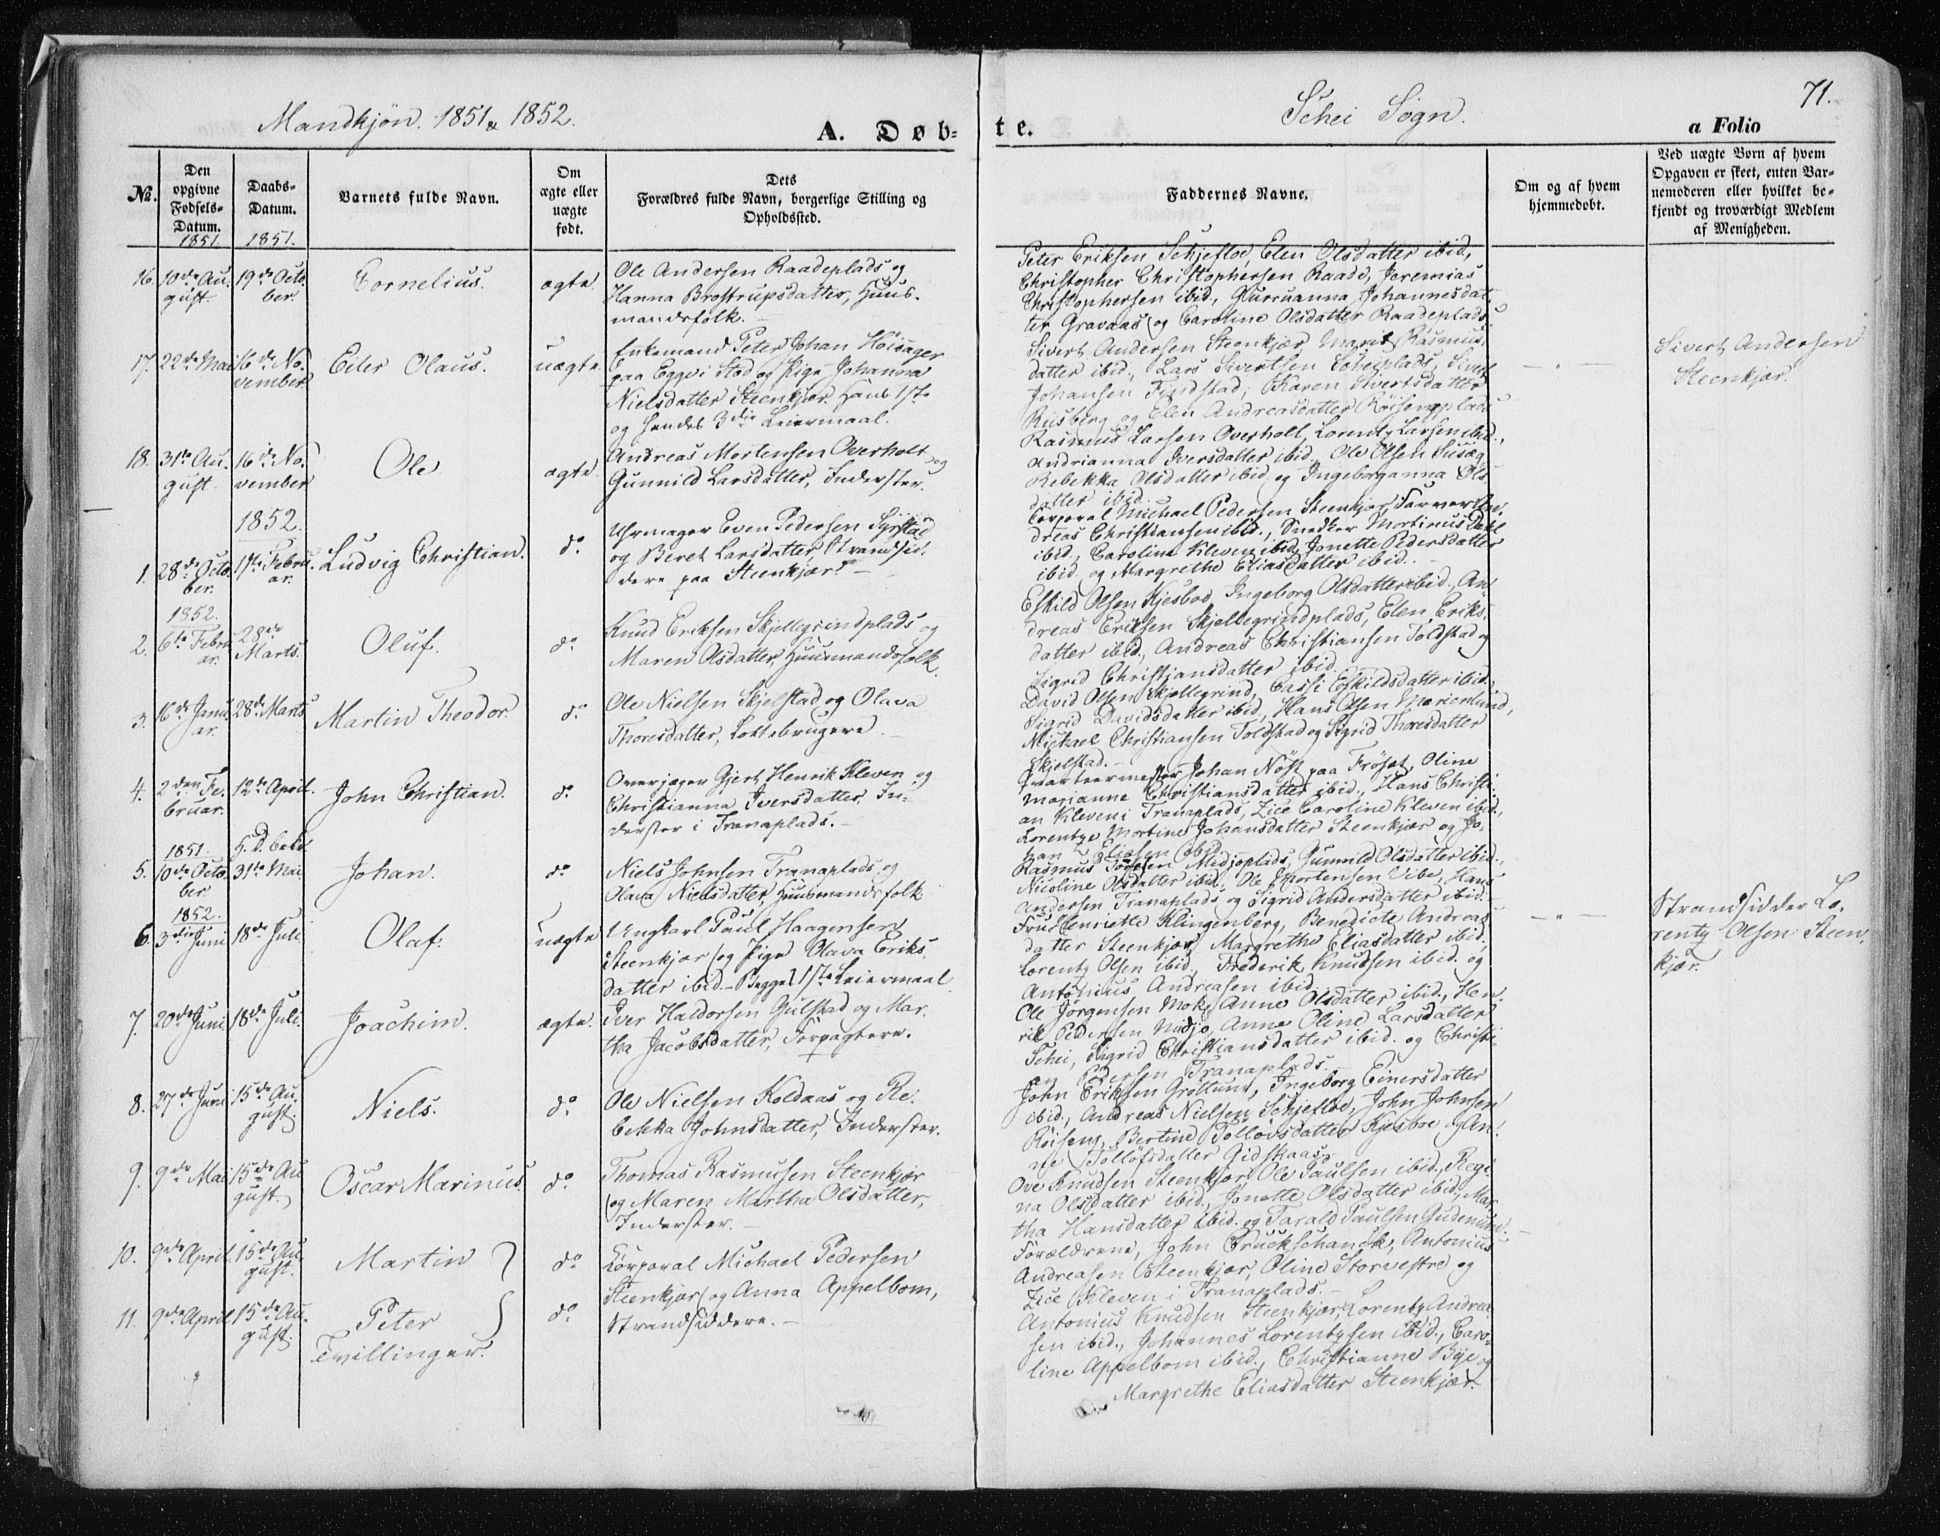 Mandkjøn. 1851 & 1852.
A. Døb-
te.
Schei Sogn.
71.
a Folio
No.
Den opgivne Fødsels-Datum.
Daabs-Datum.
Barnets fulde Navn.
Om ægte eller uægte født.
Dets Forældres fulde Navn, borgerlige Stilling og Opholdssted.
Faddernes Navne.
Om og af hvem hjemmedøbt.
Ved uægte Børn af hvem Opgaven er skeet, enten Barnemoderen eller hvilket bekjendt og troværdigt Medlem af Menigheden.
1851.
1851.
16.
10de Au-
gust.
19de Octo-
ber.
Cornelius.
ægte.
Ole Andersen Raadeplads og
Hanna Brostrupsdatter, Huus-
mandsfolk.
Peter Eriksen Schjefloe, Elen Olsdatter ibid,
Christopher Christophersen Raade, Jeremias
Christophersen ibid, Gurruanna Johannesdat-
ter Gravaas og Caroline Olsdatter Raadeplads.
17.
22de Mai
16de No-
vember
Eiler Olaus.
uægte.
Enkemand Peter Johan Hoisager
paa Eggvi Stod og Pige Johanna
Nielsdatter Steenkjær. Hans 1ste
og hendes 3die Leiermaal.
Sivert Andersen Steenkjær, Marit Rasmus-
datter ibid., Lars Sivertsen Scheiplads, Sivert
Johansen Findstad, Karen Sivertsdatter
Riisberg og Elen Andreasdatter Røisengplads.
— " —
Sivert Andersen
Steenkjær.
18.
31te Au-
gust.
16de No-
vember
Ole
ægte.
Andreas Mortensen Overholt og
Gunnild Larsdatter, Inderster.
Rasmus Larsen Overholt, Lorentz Larsen ibid.,
Andrianna Iversdatter ibid., Ole Olsen Susæg
Rebekka Olsdatter ibid. og Ingeborganna Ols-
datter ibid.
1852.
1.
28de Octo-
ber.
1ste Febru-
ar.
Ludvig Christian.
do
Uhrmager Even Pedersen Syrstad
og Beret Larsdatter, Strandsid-
dere paa Steenkjær. —
Corporal Michael Pedersen Steenkjær, Farver An-
dreas Christiansen ibid., Snedker Martinus Dahl
ibid., Caroline Kleven ibid., Jonette Pedersdatter
ibid. og Margrethe Eliasdatter ibid.
1852.
2.
6te Febru-
ar.
28de
Marts.
Oluf.
do
Knud Eriksen Skjellegrindplads og
Maren Olsdatter, Huusmandsfolk.
Eskild Olsen Kjesbod, Ingeborg Olsdatter ibid., An-
dreas Eriksen Skjellegrindplads, Elen Eriks-
datter ibid., Andreas Christiansen Toldstad og
Sigrid Christiansdatter ibid.
3.
16de Janu-
ar.
28de Marts
Martin Theodor.
do
Ole Nielsen Skjelstad og Olava
Thoresdatter, Lottebrugere.
David Olsen Skjellegrind, Cassi Eskildsdatter ibid.,
Sigrid Davidsdatter ibid, Hans Olsen Marienlund,
Michael Christiansen Toldstad og Sigrid Thoresdatter
Skjelstad. —
4.
2den Fe-
bruar.
12te April.
John Christian.
do
Overjæger Gjert Henrik Kleven og
Christianna Iversdatter, In-
derster i Tranaplads. —
Quarteermester Johan Nøst paa Frøset, Oline
Marianne Christiansdatter ibid., Hans Christi-
an Kleven i Tranaplads, Zice Caroline Kleven ibid.,
Lorentze Martine Johansdatter Steenkjær og Jo-
han Eliasen ibid.
1851.
5.
10de Octo-
ber
31te Mai.
Johan.
do
Niels Johnsen Tranaplads og
Olava Nielsdatter, Huusmandsfolk
Rasmus Toresen Midjoplads, Gunnild Olsdatter ibid.,
Nicoline Olsdatter ibid., Ole Mortensen Vibe, Hans
Andersen Tranaplads og Sigrid Andersdatter ibid. —
1852.
6.
3die Juni
18de Juli
Olaf.
uægte
Ungkarl Paul Haagensen
Steenkjær og Pige Olava Eriks-
datter ibid. — Begges 1ste Leiermaal.
Frue Henriette Klingenberg, Benedicte Andreas-
datter Steenkjær, Margrethe Eliasdatter ibid.,
Lorentz Olsen ibid., Frederik Knudsen ibid. og
Antonius Andreasen ibid.
— " —
Strandsidder Lo-
rentz Olsen Steen-
kjær.
7.
20de Juni
18de Juli.
Joachim.
ægte.
Iver Haldorsen Gulstad og Mar-
tha Jacobsdatter, Forpagtere.
Ole Jørgensen Mok, Anne Olsdatter ibid., Hen-
rik Pedersen Midjo, Anne Oline Larsdatter
Schei, Sigrid Christiansdatter ibid. og Christi-
an Pedersen Tranaplads. —
8.
27de Juni
15de Au-
gust.
Niels.
do
Ole Nielsen Koldaas og Re-
bekka Johnsdatter, Inderster.
John Eriksen Grøttum, Ingeborg Einersdatter
ibid., Andreas Nielsen Schjefloe, John Johnsen
Røiseng, Bertine Tollovsdatter Kjesboe og An-
ne Tollofsdatter Gidskaas.
9.
9de Mai
15de Au-
gust.
Oscar Marinus.
do
Thomas Rasmussen Steenkjær
og Maren Martha Olsdatter,
Inderster. —
Ove Knudsen Steenkjær, Ole Paulsen ibid., Regi-
na Olsdatter ibid., Jonette Olsdatter ibid., Mar-
tha Hansdatter ibid. og Tarald Paulsen Gudenum. —
10.
9de April
15de Au-
gust.
Martin
do
Corporal Michael Pedersen
Steenkjær og Anna Appelbom,
Strandsiddere. —
Forældrene, John Bruckschanck, Antonius
Andreasen Steenkjær, Oline Storvestre og
Zice Kleven i Tranaplads. —
11.
9de April
15de Au-
gust.
Peter
Tvillinger.
do
Antonius Knudsen Steenkjær, Lorentz Andrea-
sen ibid., Johannes Lorentzsen ibid., Caro-
line Appelbom ibid., Christianne Beje og
Margrethe Eliasdatter Steenkjær.